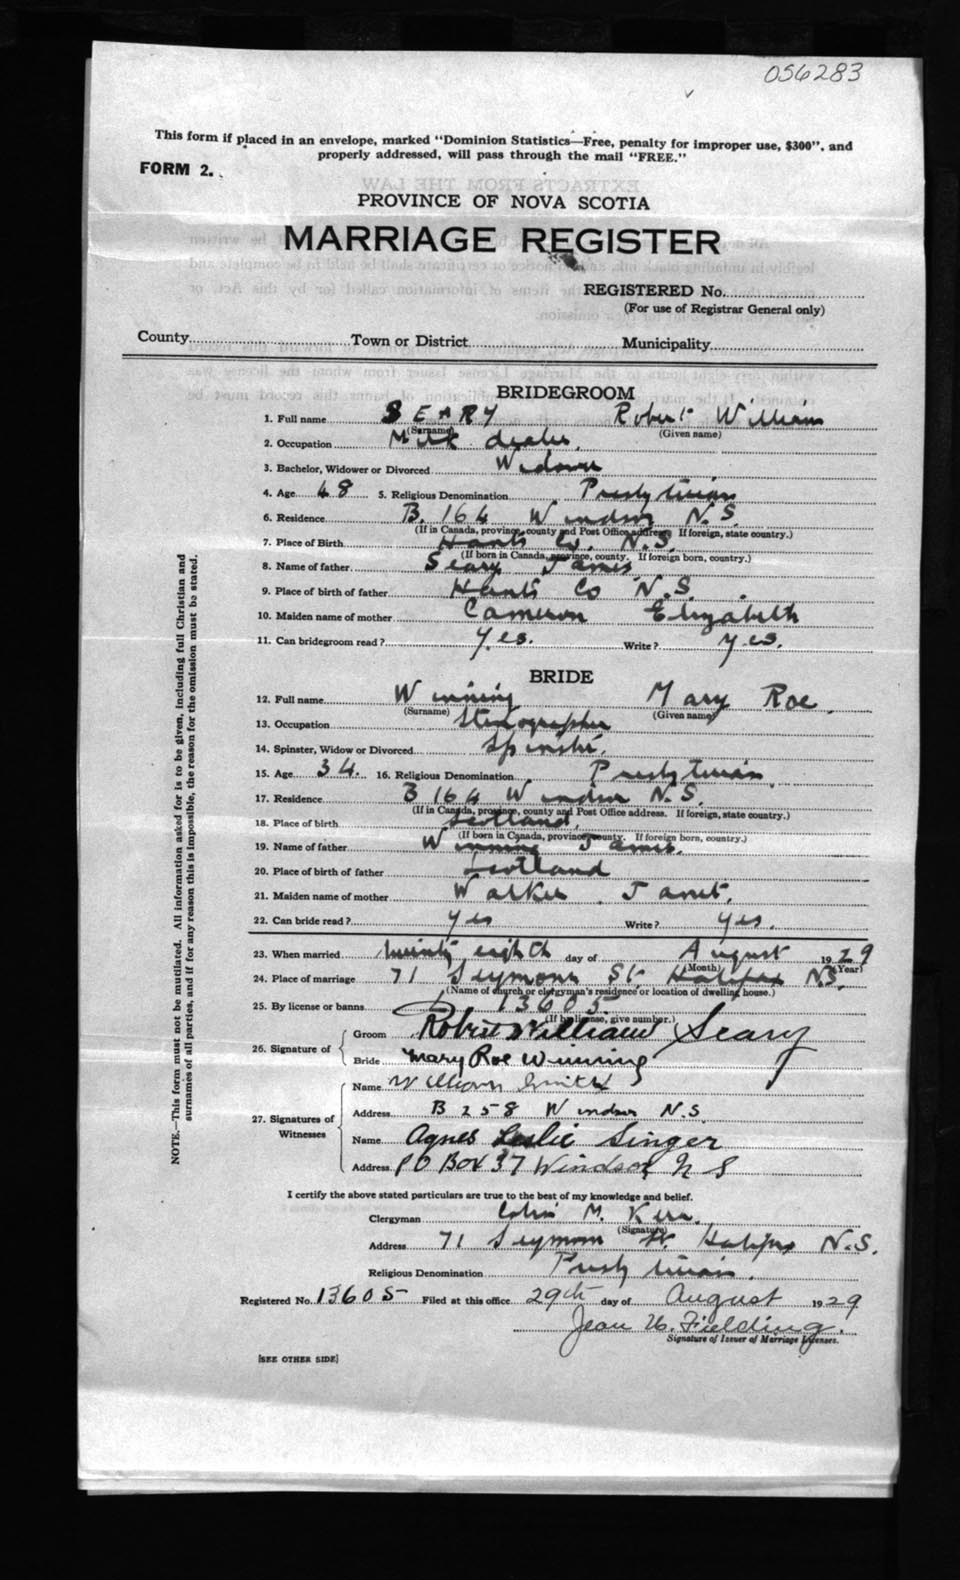 056283
This form if placed in an envelope, marked "Dominion Statistics—Free, penalty for improper use, $300", and
properly addressed, will pass through the mail "FREE."
FORM 2.
PROVINCE OF NOVA SCOTIA
MARRIAGE REGISTER
REGISTERED No.
(For use of Registrar General only)
County Town or District Municipality
BRIDEGROOM
1. Full name SEARY Robert William
(Surname) (Given name)
2. Occupation Milk dealer
3. Bachelor, Widower or Divorced Widower
4. Age 48 5. Religious Denomination Presbyterian
6. Residence B. 164 Windsor N.S.
(If in Canada, province, county and Post Office address. If foreign, state country.)
7. Place of Birth Hants Co. N.S.
(If born in Canada, province, county. If foreign born, country.)
8. Name of father Seary James
9. Place of birth of father Hants Co N.S.
10. Maiden name of mother Cameron Elizabeth
11. Can bridegroom read? Yes. Write? yes.
BRIDE
12. Full name Winning Mary Roe
(Surname) (Given name)
13. Occupation Stenographer
14. Spinster, Widow or Divorced Spinster.
15. Age 34. 16. Religious Denomination Presbyterian
17. Residence B 164 Windsor N.S.
(If in Canada, province, county and Post Office address. If foreign, state country.)
18. Place of birth Scotland
(If born in Canada, province, county. If foreign born, country.)
19. Name of father Winning James.
20. Place of birth of father Scotland
21. Maiden name of mother Walker Janet.
22. Can bride read? yes Write? yes.
23. When married twenty eighth day of August 1929
(Month) (Year)
24. Place of marriage 71 Seymour St. Halifax N.S.
(Name of church or clergyman's residence or location of dwelling house.)
25. By license or banns 13605
(If by license, give number.)
26. Signature of Groom Robert William Seary
Bride Mary Roe Winning
27. Signatures of Witnesses
Name William Smith
Address B 258 Windsor N.S.
Name Agnes Leslie Singer
Address PO Box 37 Windsor N S
I certify the above stated particulars are true to the best of my knowledge and belief.
Clergyman Colin M. Kerr.
(Signature)
Address 71 Seymour St. Halifax N.S.
Religious Denomination Presbyterian.
Registered No. 13605 Filed at this office 29th day of August 1929
Jean U. Fielding.
Signature of Issuer of Marriage Licenses.
[SEE OTHER SIDE]
NOTE.—This form must not be mutilated. All information asked for is to be given, including full Christian and
surnames of all parties, and if for any reason this is impossible, the reason for the omission must be stated.